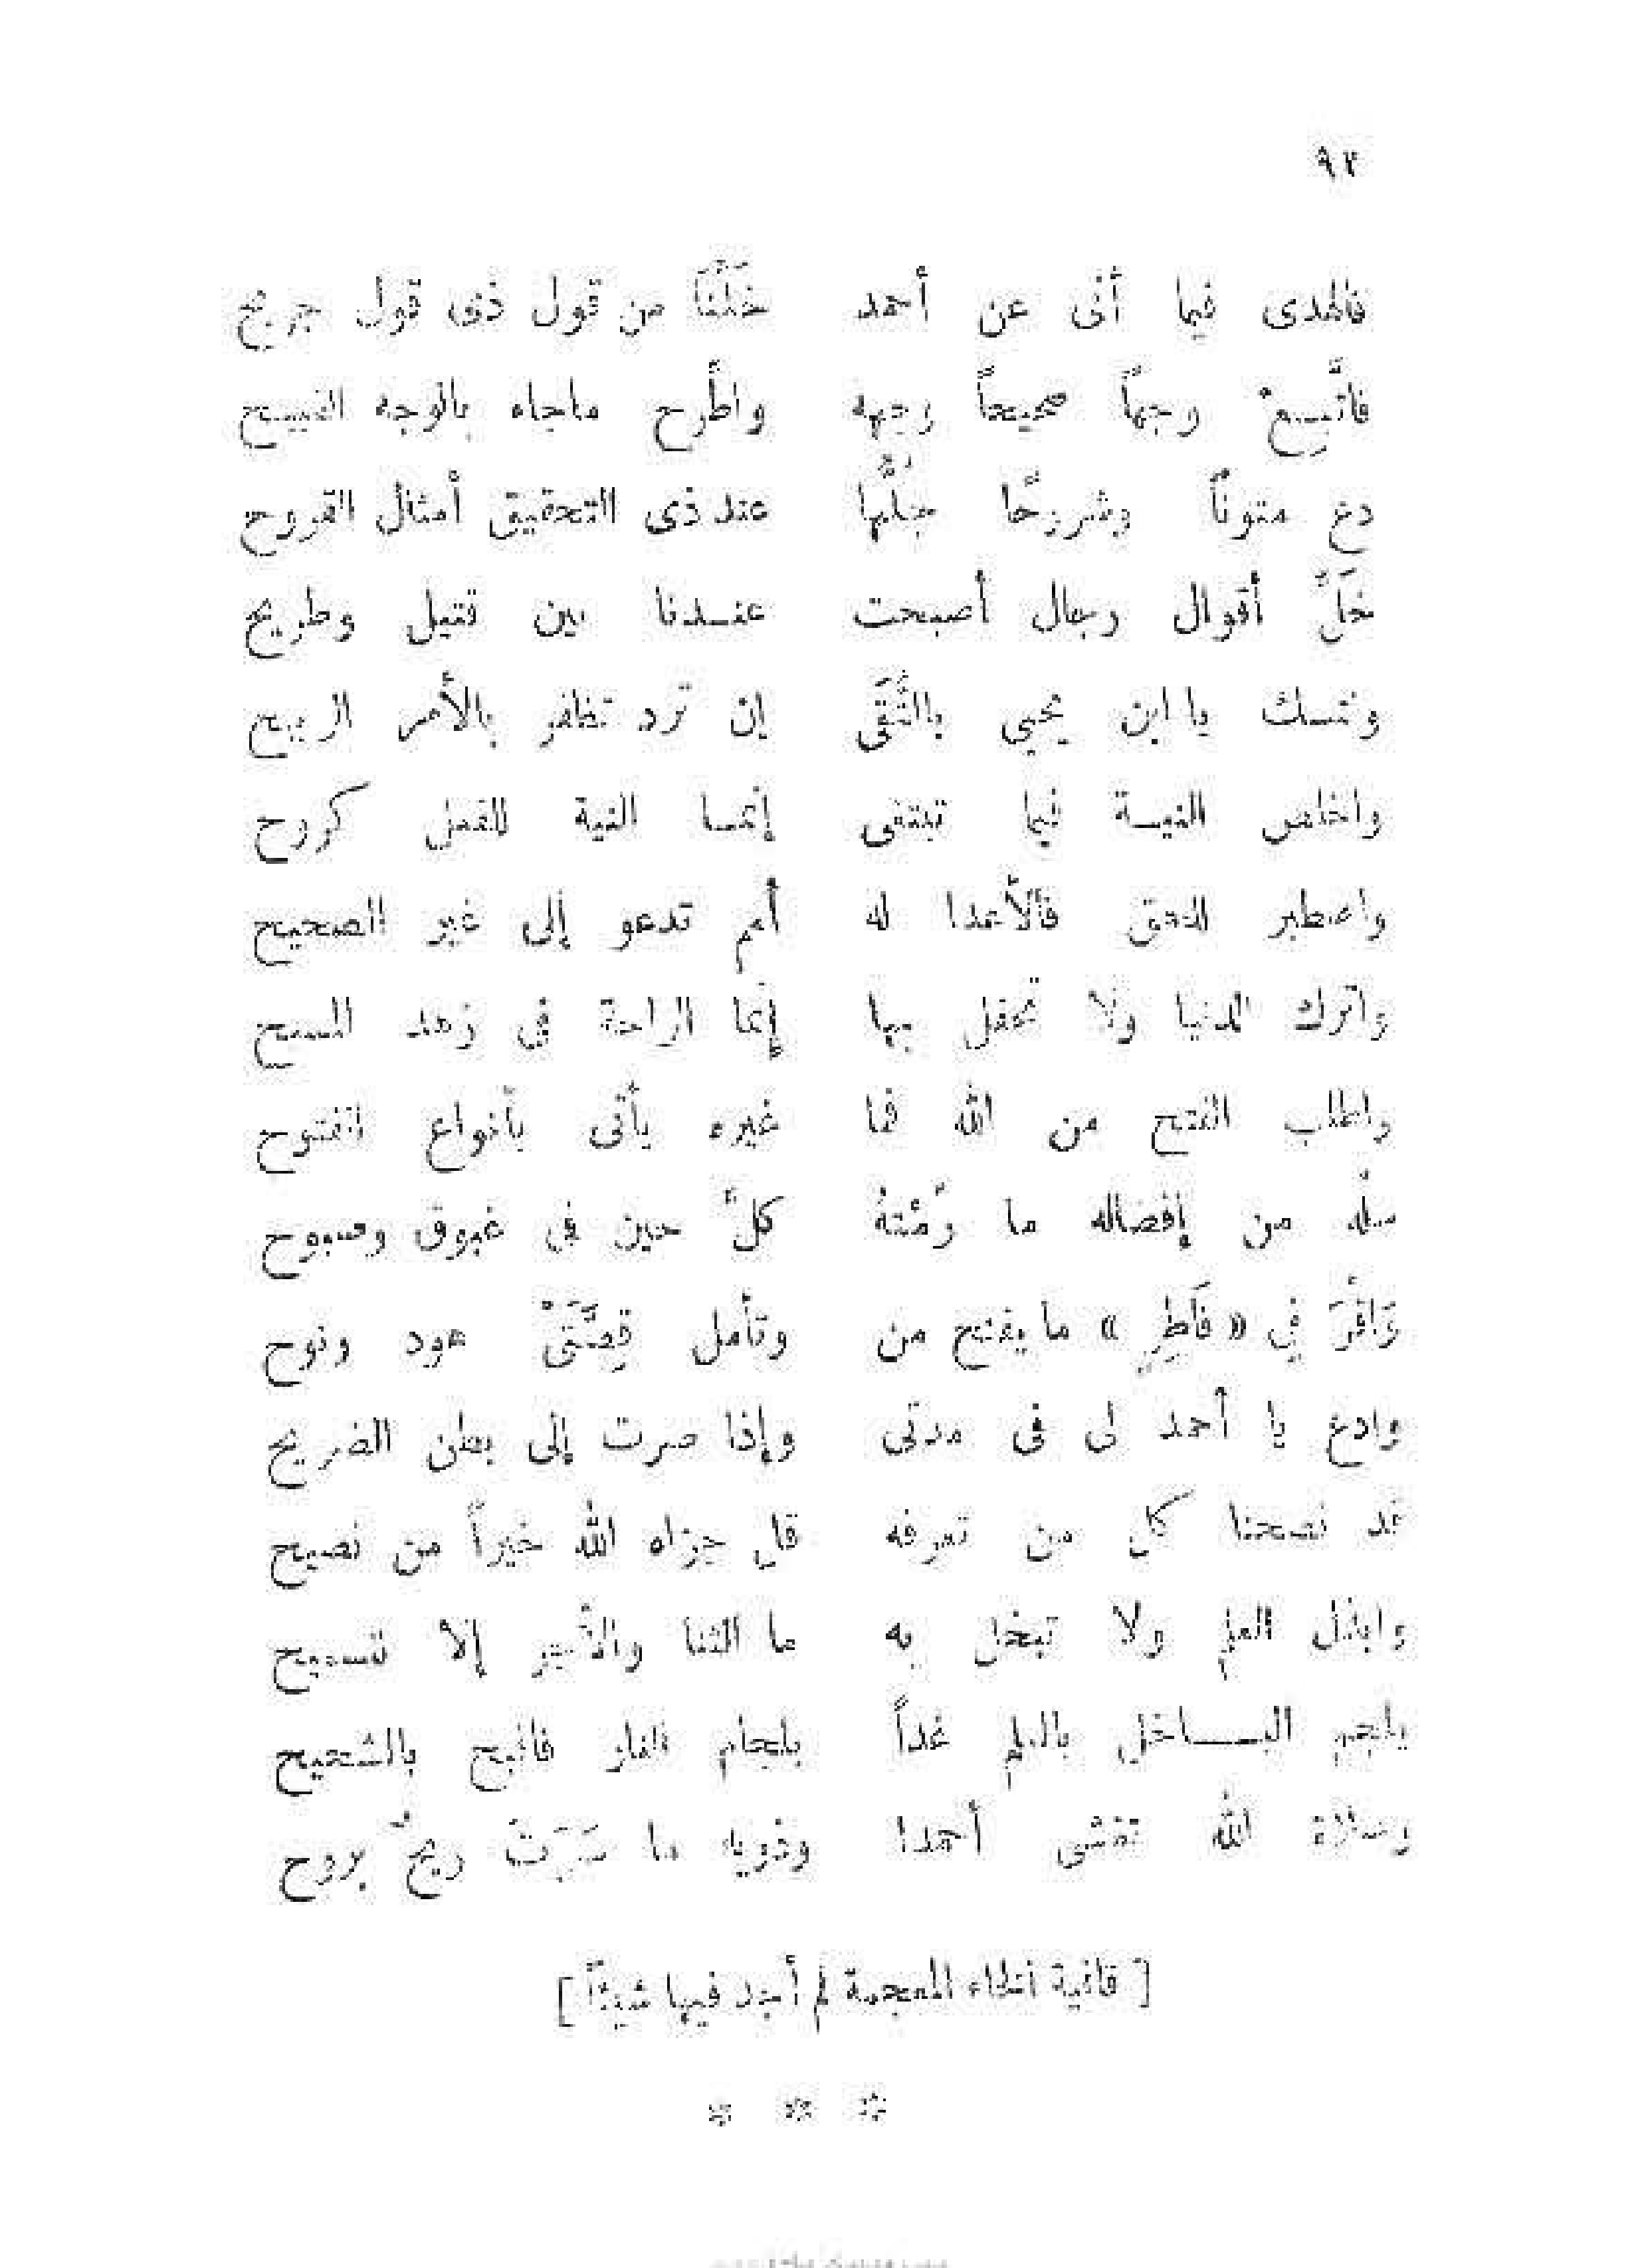 ٩٢
فالهدى فيما أتى عن أحمد خَلِّنَا من قول ذى قول جريح
فاتَّبِعْ وجهاً صحيحاً وجهه واطَّرح ماجاه بالوجه القبيح
دع متوناً وشروحًا جلُّها عند ذى التحقيق أمثال القروح
خَلِّ أقوال رجال أصبحت عنــدنا بين قتيل وطريح
وتمسك يا ابن يحيى بالتُّقَى إن ترد تظفر بالأمر الربيح
واخلص النيــة فيما تبتغى إنمــا النية للفعل كروح
واصطبر للحق فالأعدا له أمم تدعو إلى غير الصحيح
واترك الدنيا ولا تحفل بها إنما الراحة فى زهد المسيح
واطلب الفتح من الله فما غيره يأتى بأنواع الفتوح
سلْه من إفضاله ما رُمْتَهُ كلَّ حين فى غبوق وصبوح
وَاقْرَ فِي « فَاطِرٍ » ما يفتح من وتأمل قِصَّتَىْ هود ونوح
وادع يا أحمد لى فى مدتى وإذا صرت إلى بطن الضريح
قد نصحنا كل من تعرفه قل جزاه الله خيراً من نصيح
وابذل العلم ولا تبخل به ما الثنا والأجر إلا للسميح
يلجم البــــاخل بالعلم غداً بلجام النار فاقبح بالشحيح
وصلاة الله تغشى أحمدا وذويه ما سَرَتْ ريحٌ بروح
[ قافية الخاء المعجمة لم أجد فيها شيئاً ]
* * *